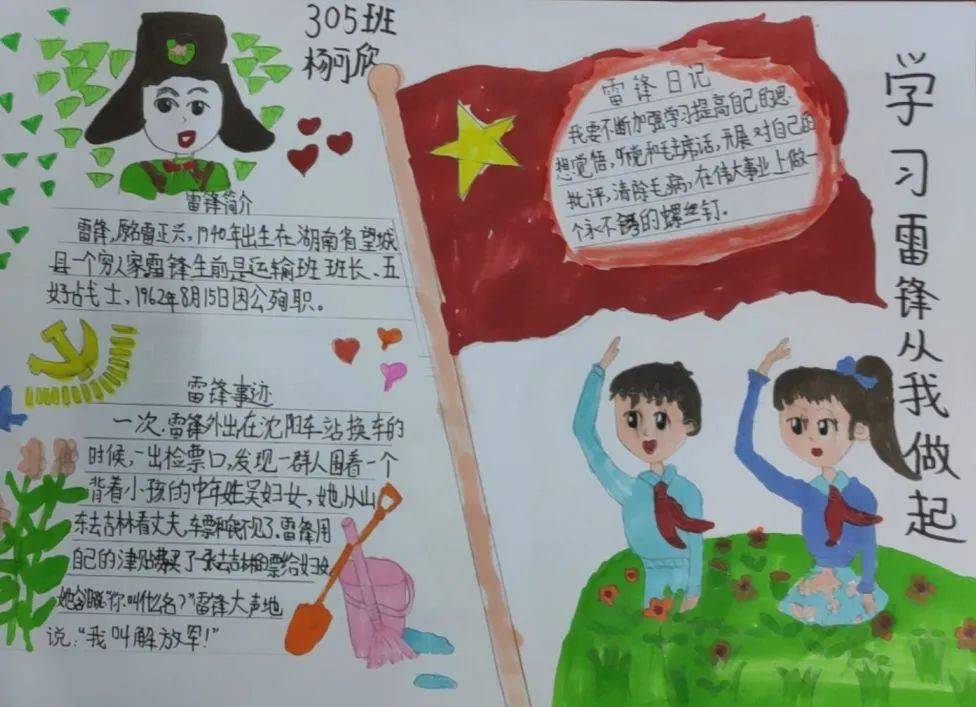 305班
杨可欣
学习雷锋从我做起
雷锋日记
我要不断加强学习提高自己的思
想觉悟,听党和毛主席话,开展对自己的
批评,清除毛病,在伟大事业上做一
个永不锈的螺丝钉。
雷锋简介
雷锋,原名雷正兴,1940年出生在湖南省望城
县一个穷人家雷锋生前是运输班班长、五
好战士,1962年8月15日因公殉职。
雷锋事迹
一次.雷锋外出在沈阳车站换车的
时候,一出检票口,发现一群人围看一个
背着小孩的中年妇女,她从山
东去吉林看丈夫,车票和钱不见了.雷锋用
自己的津贴费买了一张去吉林的票给妇女
她含 说"你叫什么名?"雷锋大声地
说:"我叫解放军!"